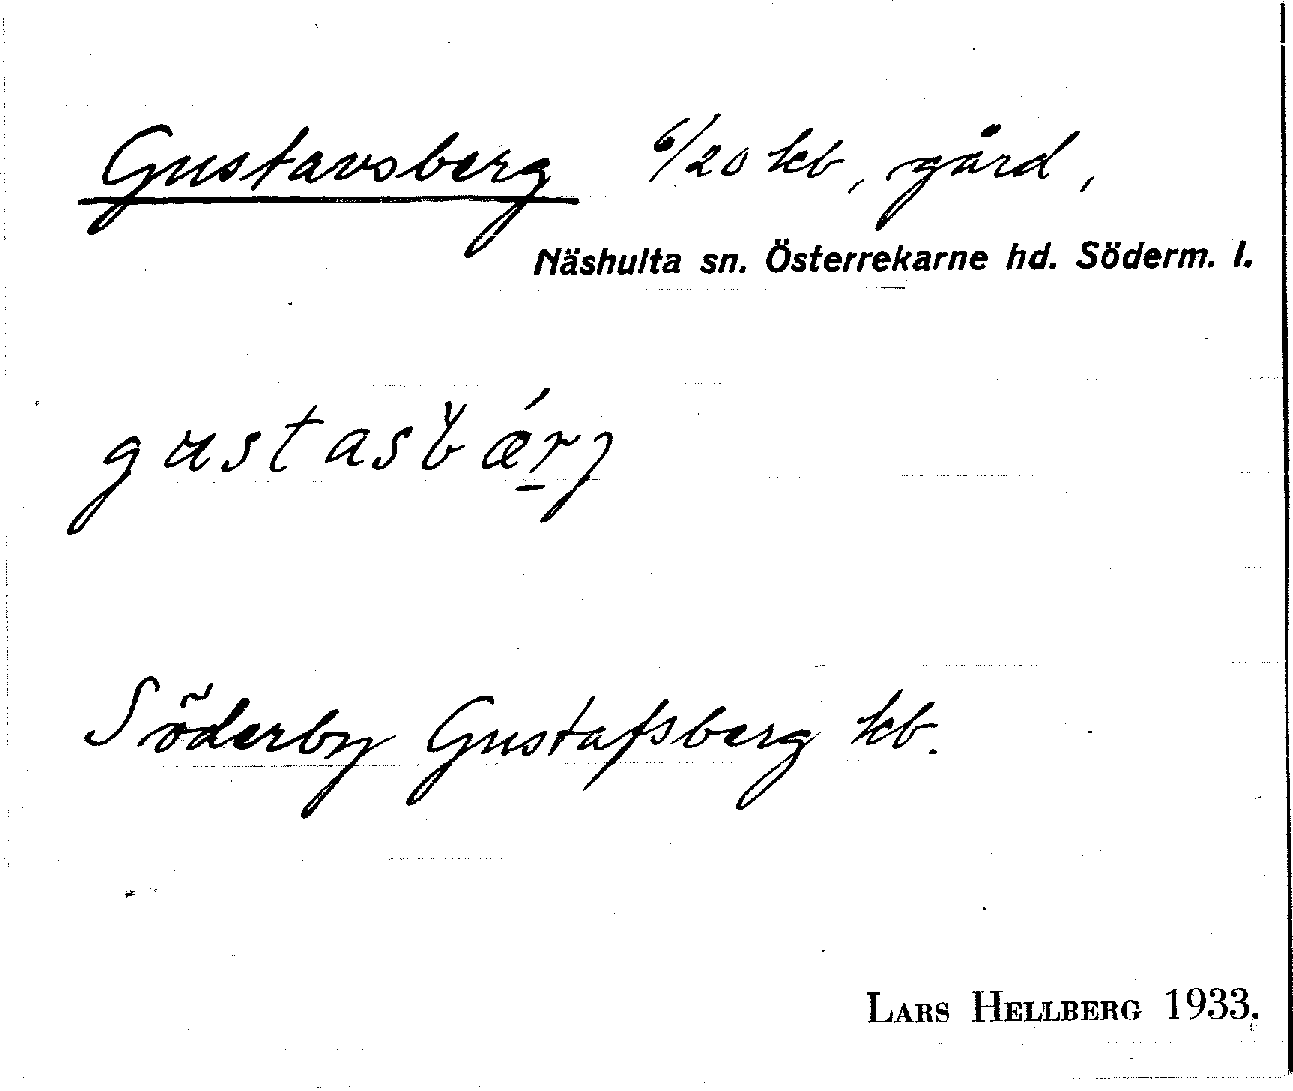 Gustavsberg 6/20 kb, gård,
Näshulta sn. Österrekarne hd. Söderm. l.
gustasbǽrj
Söderby Gustafsberg kb.
LARS HELLBERG 1933.